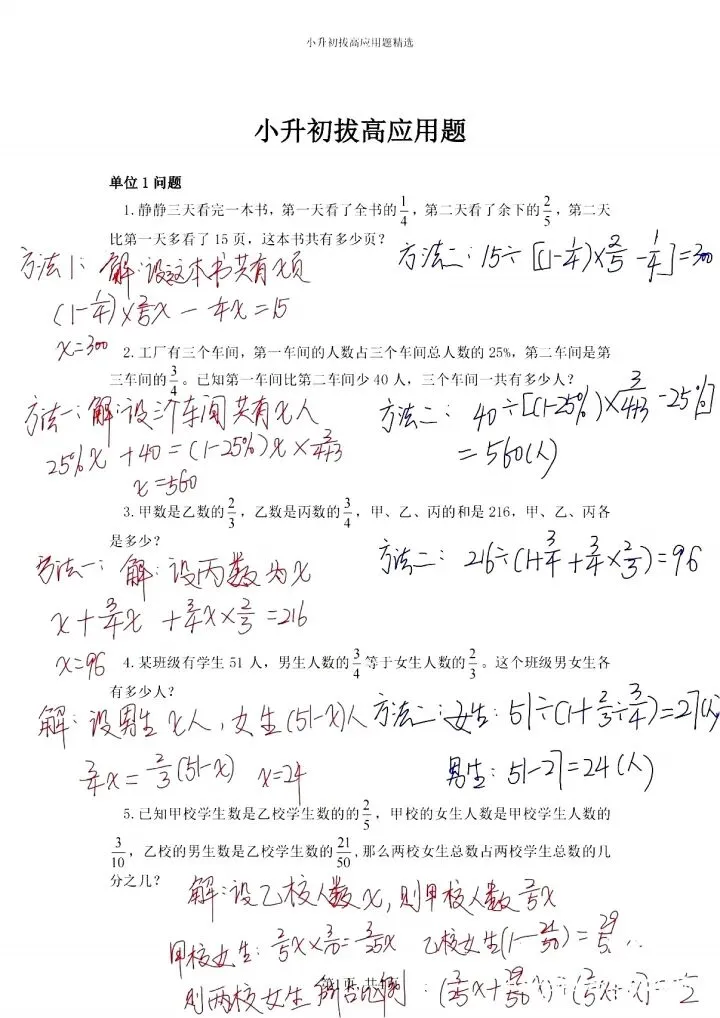 小升初拔高应用题精选
小升初拔高应用题
单位1问题
1.静静三天看完一本书，第一天看了全书的1/4，第二天看了余下的2/5，第二天
比第一天多看了15页，这本书共有多少页？
方法1：解：设这本书共有x页
方法二：15÷[(1-1/4)×2/5-1/4]=300
(1-1/4)×2/5x-1/4x=15
x=300
2.工厂有三个车间，第一车间的人数占三个车间总人数的25%，第二车间是第
三车间的3/4。已知第一车间比第二车间少40人，三个车间一共有多少人？
方法一：解：设三个车间共有x人
方法二：40÷[(1-25%)×3/4+3-25%]
25%x+40=(1-25%)x×3/4+3
=560(人)
x=560
3.甲数是乙数的2/3，乙数是丙数的3/4，甲、乙、丙的和是216，甲、乙、丙各
是多少？
方法一：解：设丙数为x
方法二：216÷(1+3/4+3/4×2/3)=96
x+3/4x+3/4x×2/3=216
x=96
4.某班级有学生51人，男生人数的3/4等于女生人数的2/3。这个班级男女生各
有多少人？
解：设男生x人，女生(51-x)人
方法二：女生：51÷(1+2/3÷3/4)=27(人)
3/4x=2/3(51-x) x=24
男生：51-27=24(人)
5.已知甲校学生数是乙校学生数的的2/5，甲校的女生人数是甲校学生人数的
3/10，乙校的男生数是乙校学生数的21/50，那么两校女生总数占两校学生总数的几
分之几？
解：设乙校人数x，则甲校人数2/5x
甲校女生：2/5x×3/10=3/25x 乙校女生(1-21/50)=29/5
则两校女生所占比例：(3/25x+29/50x)÷(2/5x+x)=1/2